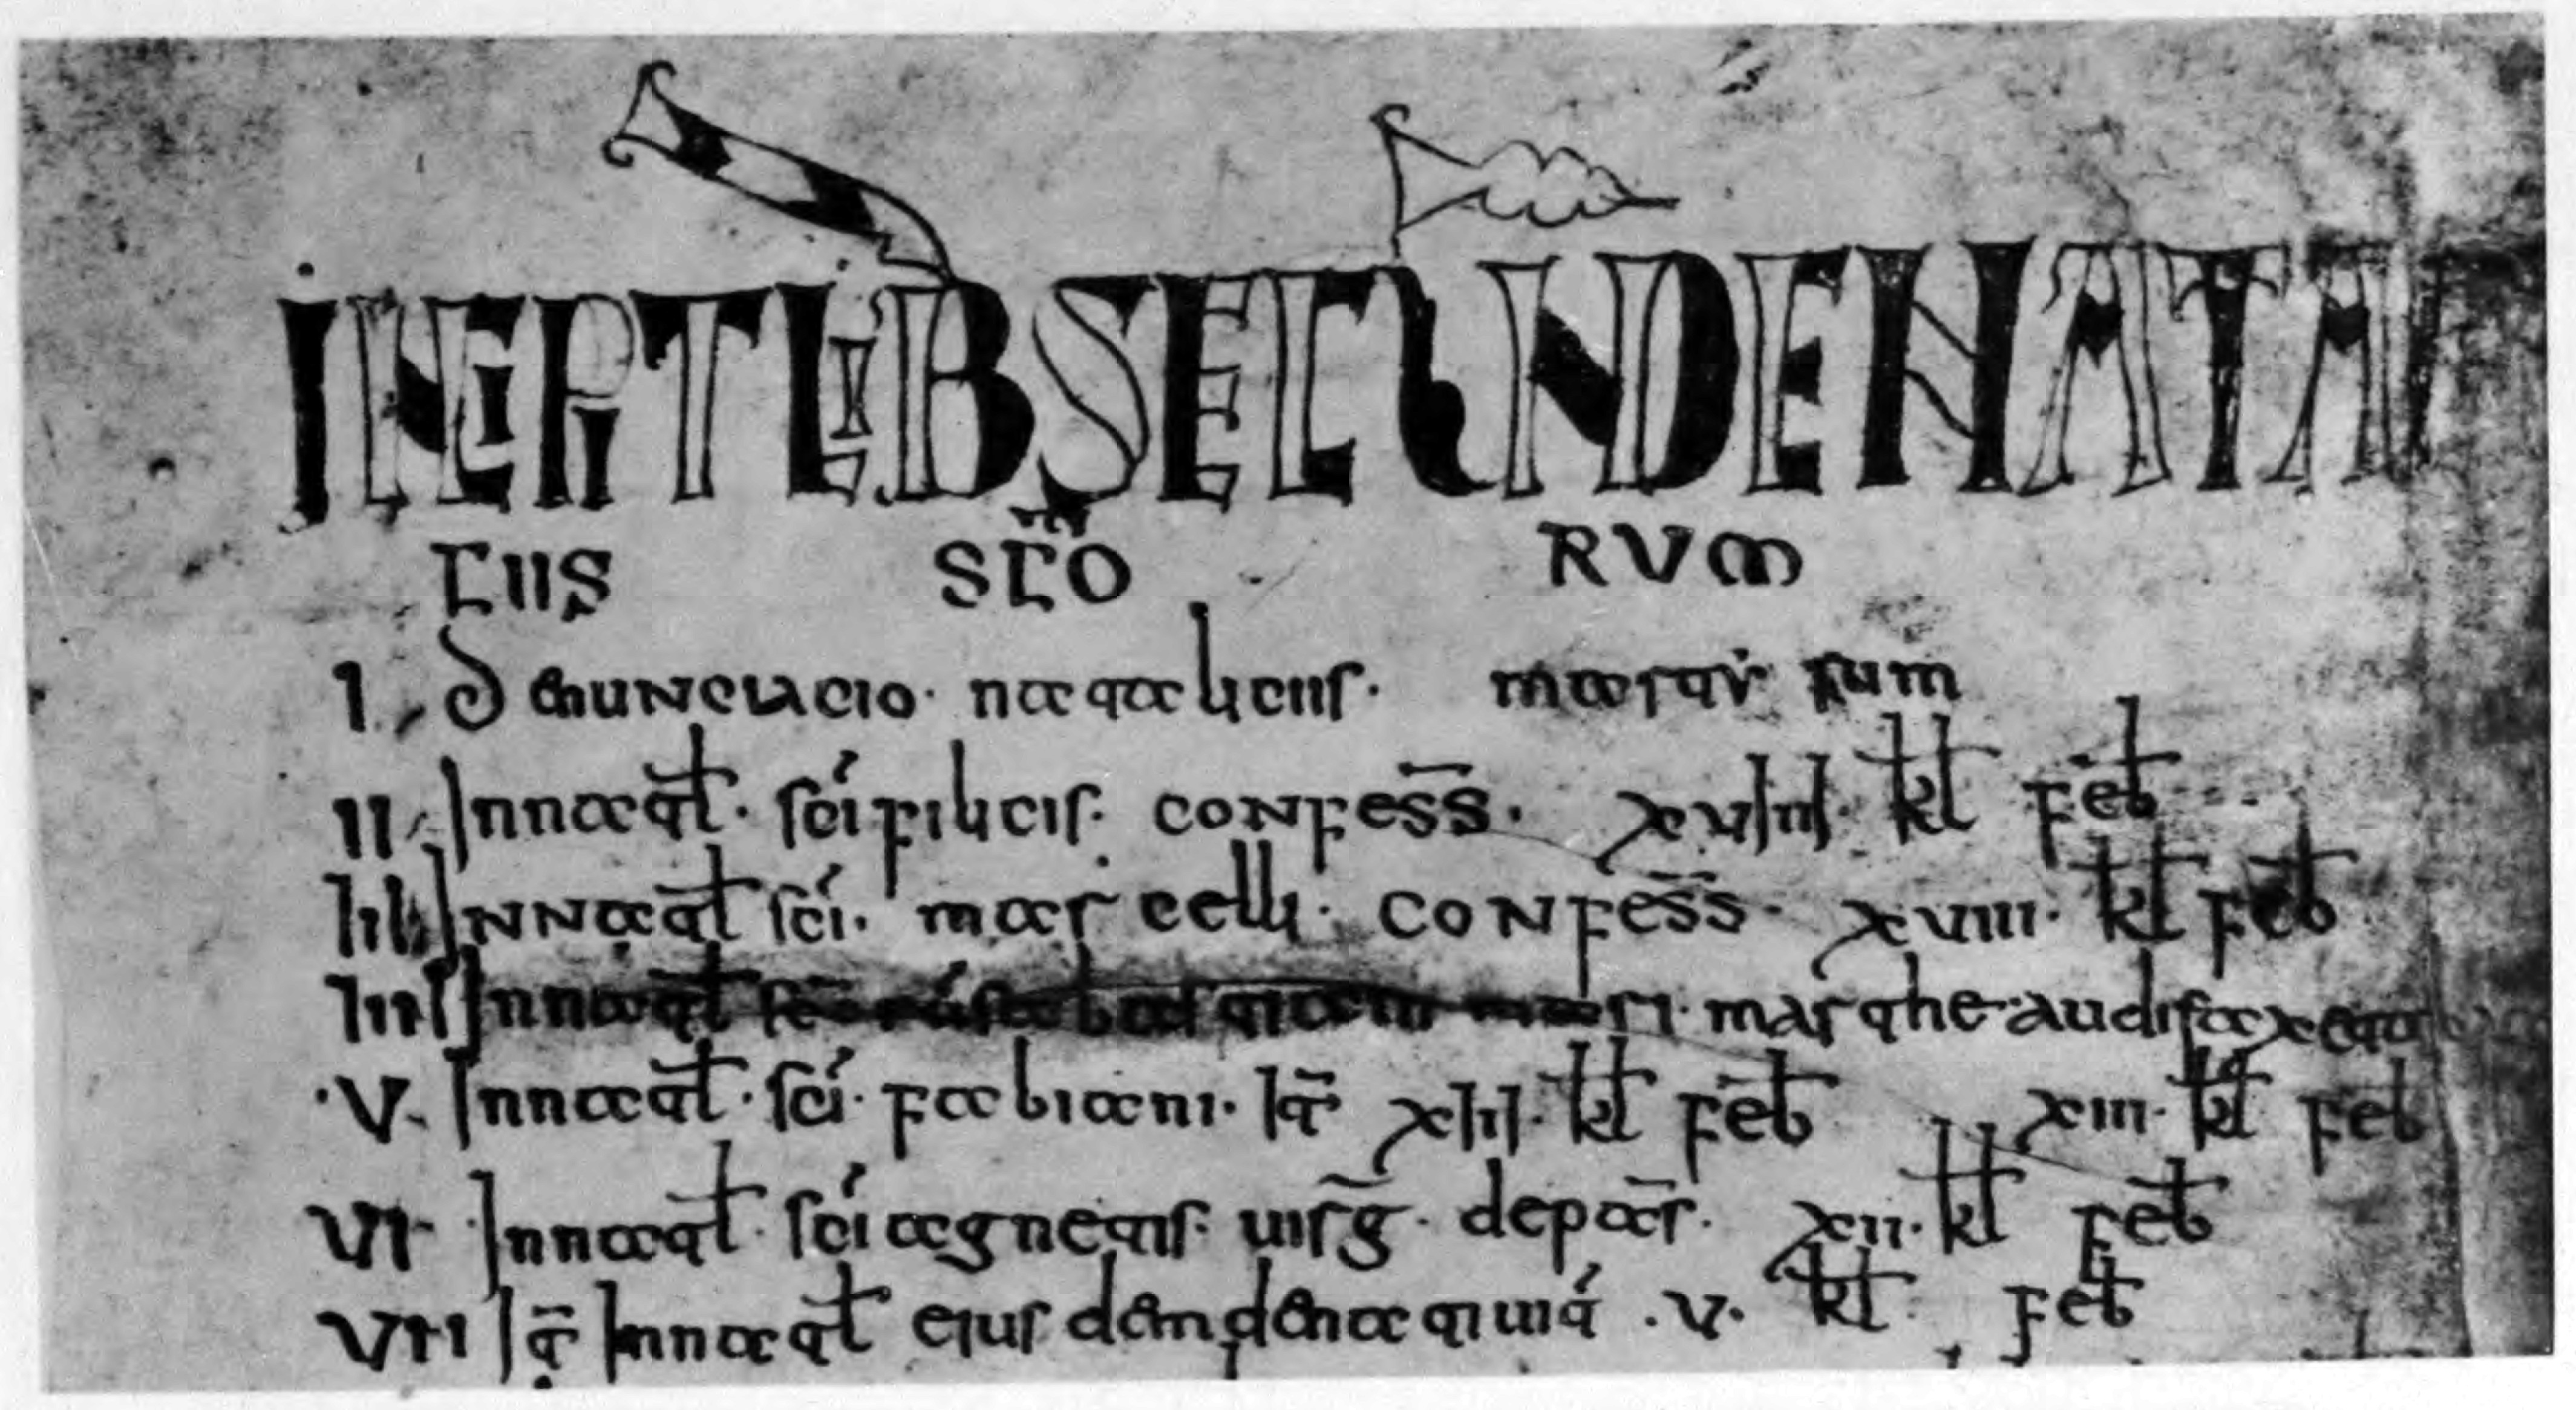 INCIPT LIB SECUNDE NATALI
CIIS SC̄O RUM
I. Denunciacio. nataliciis. martyrum
II. In natl̄. sc̄i filicis. confess̄. xviiii. kl̄ feb̄
III In natl̄ sc̄i. marcelli. confess̄. xviii. kl̄ feb̄
IIII In natl̄ mari. marthe. audifax
.V. In natl̄. sc̄i. fabiani. It̄ xiii. kl̄ feb̄ xiii. kl̄ feb̄
VI. In natl̄. sc̄i agnetis. uirḡ. de pas̄. xii. kl̄ feb̄
VII It̄ In natl̄ eiusdem de natiuit́ .v. kl̄ feb̄